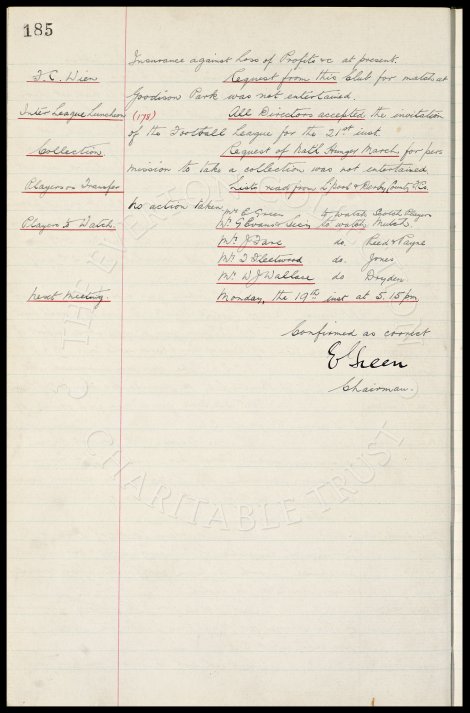 185
Insurance against Loss of Profits &c at present.
F.C. Wien Request from this Club for match at
Goodison Park was not entertained.
Inter League Luncheon (178) All Directors accepted the invitation
of the Football League for the 21st inst.
Collection. Request of Natl Hunger March, for per
mission to take a collection was not entertained
Players on Transfer Lists read from L'pool & Derby County F.Cs.
No action taken
Mr. E. Green to watch Players
Players to Watch. Mr. G Evans & Secy to watch Mutch.
Mr. J Fare do. Reed & Payne
Mr. T Fleetwood do. Jones
Mr. W J Wallace do Dryden
Next Meeting. Monday, the 19th inst at 5.15pm
Confirmed as correct
E Green
Chairman.
THE EVERTON
CHARITABLE TRUST